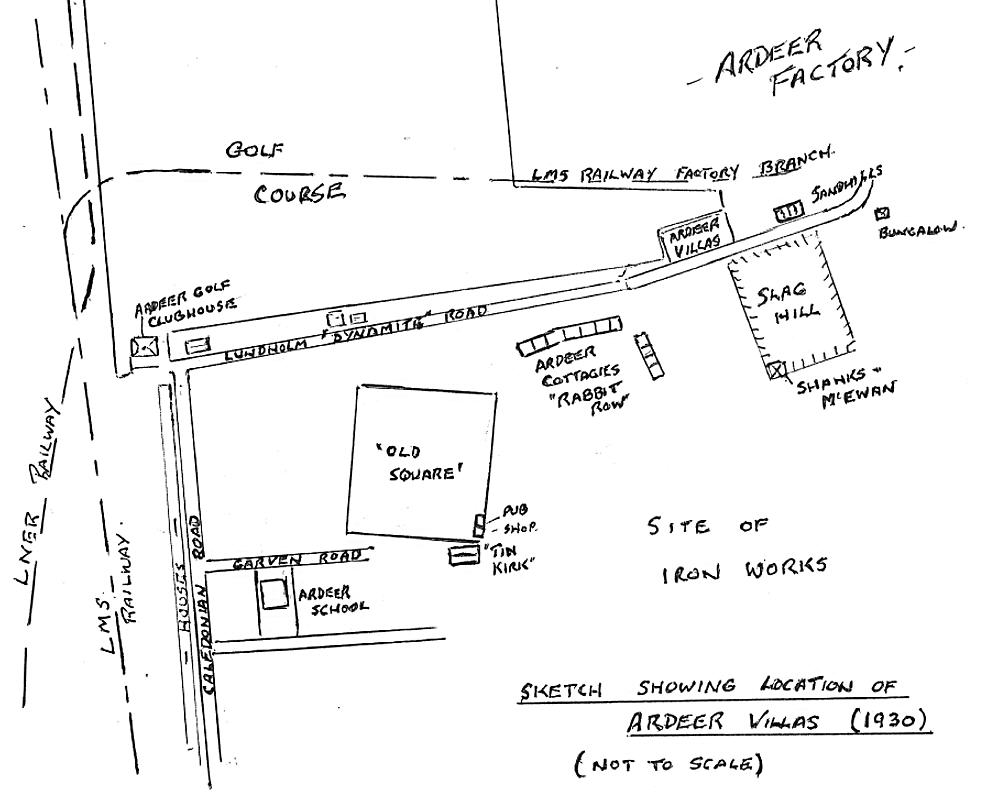 - ARDEER
FACTORY. -
GOLF
COURSE
LMS RAILWAY FACTORY BRANCH.
SANDHILLS
BUNGALOW.
ARDEER
VILLAS
SLAG
HILL
SHANKS &
McEWAN
ARDEER GOLF
CLUBHOUSE
LUNDHOLM "DYNAMITE" ROAD
ARDEER
COTTAGIES
"RABBIT
ROW"
"OLD
SQUARE"
PUB
- SHOP.
"TIN
KIRK"
GARVEN ROAD
ARDEER
SCHOOL
LNER RAILWAY
LMS.
RAILWAY.
HOUSES
CALEDONIAN ROAD
SITE OF
IRON WORKS
SKETCH SHOWING LOCATION OF
ARDEER VILLAS (1930)
(NOT TO SCALE)